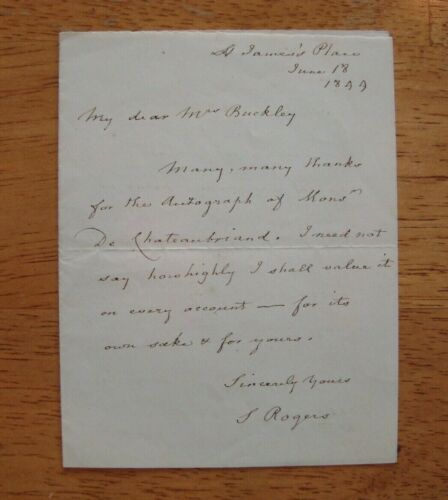 St James's Place
June 18
1844
My dear Mrs Buckley
Many, many thanks
for the Autograph of Monsr
De Chateaubriand. I need not
say how highly I shall value it
on every account — for its
own sake & for yours.
Sincerely Yours
S Rogers